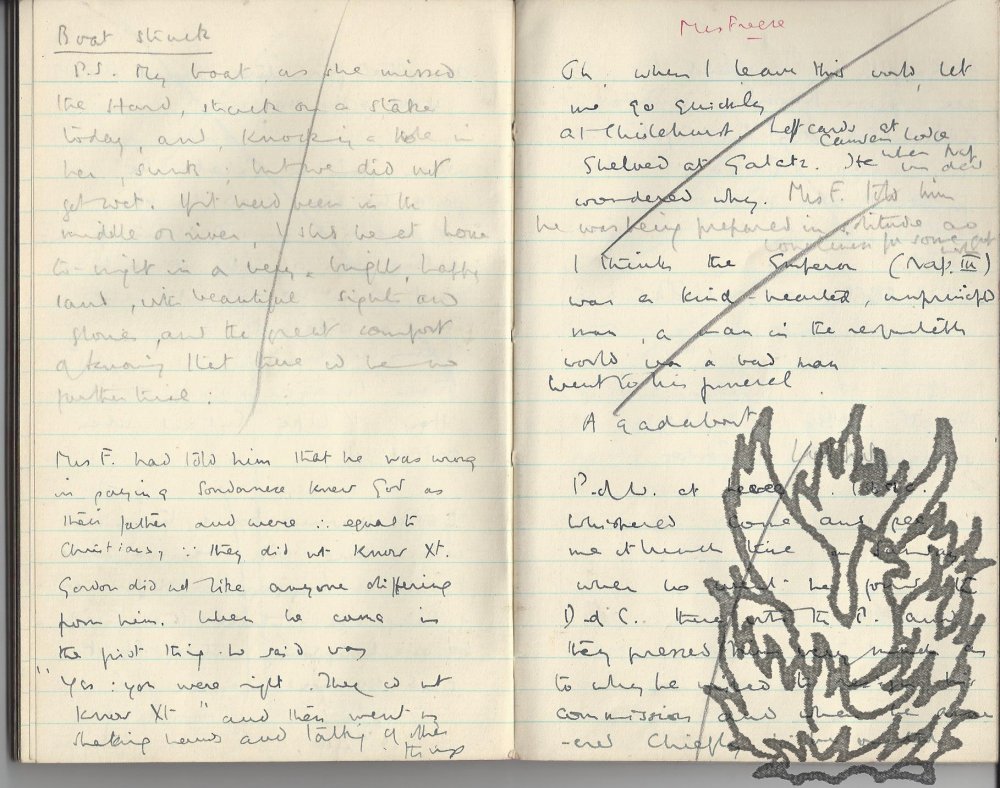 Boat struck
P.S. My boat, as she missed
the Hard, struck on a stake
today, and, knocking a hole in
her, sunk; but we did not
get wet. If it had been in the
middle of river, I shd be at home
to-night in a very bright, happy
land, with beautiful sights and
stories, and the great comfort
of knowing that there wd be no
further trial:
Mrs F. had told him that he was wrong
in saying Soudanese knew God as
their father and were ∴ equal to
Christians, ∵ they did not know Xt.
Gordon did not like anyone differing
from him. When he came in
the first thing he said was
"Yes: you were right. They do not
know Xt" and then went on
shaking hands and talking of other
things
Mrs Freese
Oh, when I leave this world, let
me go quickly
at Chislehurst Left cards at
Camden Lodge
when Nap
was dead
Shelved at Galatz. He
wondered why. Mrs F. told him
he was being prepared in solitude and
loneliness for some great
I think the Emperor (Nap. III)
was a kind-hearted, unprincipled
man, a man in the respectable
world was a bad man
Went to his funeral
A gadabout
P. of W. at
whispered come and see
me at lunch time on Sunday
when he went he found the
D of C. there with the P. and
they pressed him very much as
to why he wished to resign his
commission and when he answ
-ered Chiefly